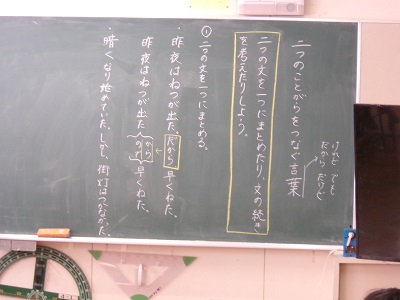 二つのことがらをつなぐ言葉
けれど でも
だから だけど
二つの文を一つにまとめたり、文の続き
を考えたりしよう。
① 二つの文を一つにまとめる。
・昨夜はねつが出た。だから 早くねた。
昨夜はねつが出た から 早くねた。
ので
・暗くなり始めていた。しかし、街灯はつかなかった。